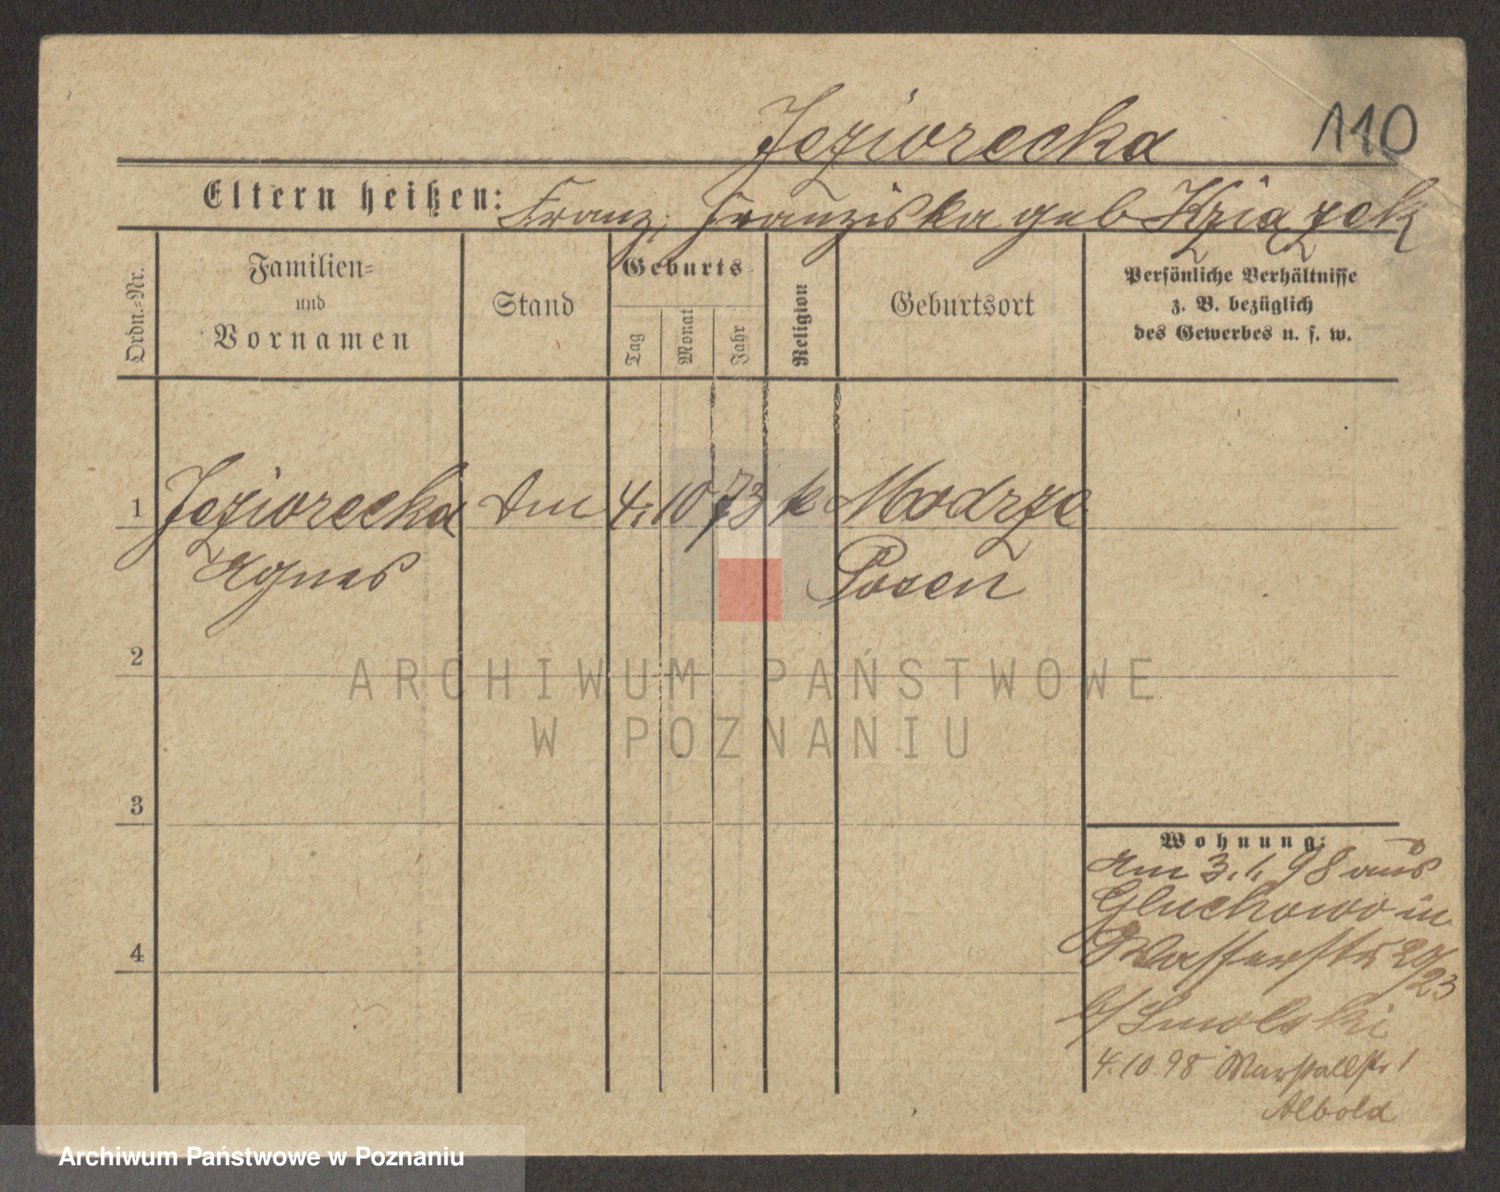 Jeziorecka 110
Eltern heißen: Franz, Franziska geb Książek
Ordn.-Nr.
Familien-
und
Vornamen
Stand
Geburts
Tag
Monat
Jahr
Religion
Geburtsort
Persönliche Verhältnisse
z. B. bezüglich
des Gewerbes u. s. w.
1 Jeziorecka 4. 10 73 k Modrze
Agnes Posen
2
ARCHIWUM PAŃSTWOWE
W POZNANIU
3
Wohnung:
Am 3.1.98 aus
Gluchowo in
Wasserstr 22/23
b/ Smolski
4
4.10 98 Marstallstr 1
Albold
Archiwum Państwowe w Poznaniu